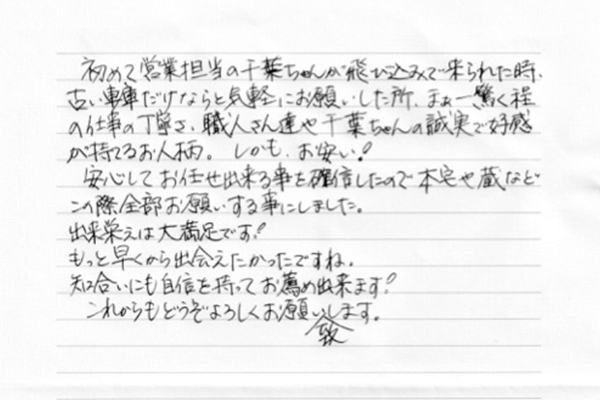 初めて営業担当の千葉ちゃんが飛び込みで来られた時、
古い車庫だけならと気軽にお願いした所、まぁー驚く程
の仕事の丁寧さ、職人さん達や千葉ちゃんの誠実で好感
が持てるお人柄。しかも、お安い!
安心してお任せ出来る事を確信したので本宅や蔵など
この際全部お願いする事にしました。
出来栄えは大満足です!
もっと早くから出会えたかったですね。
知り合いにも自信を持ってお薦め出来ます!
これからもどうぞよろしくお願いします。
致